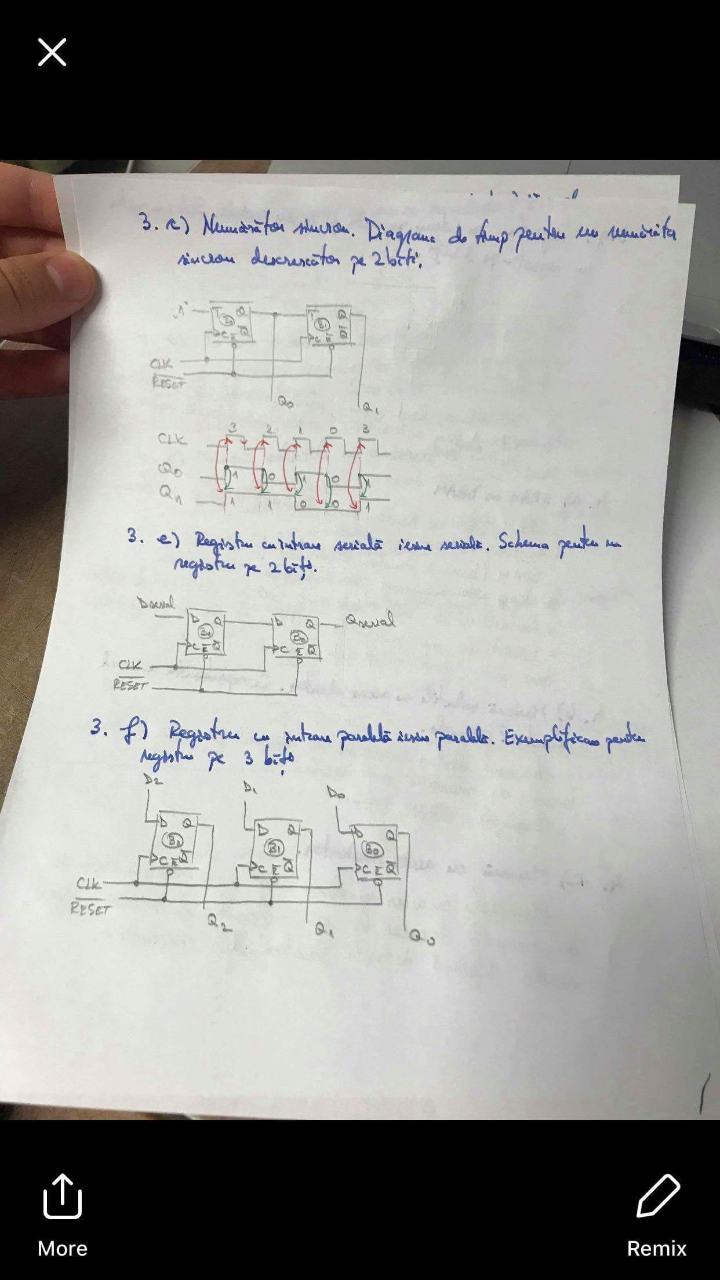 3. c) Numărător sincron. Diagrame de timp pentru un numărăto
sincron descrescător pe 2 biți.
"1" T Q T Q
C R Q̅ C R Q̅
CLK
RESET
Q0 Q1
3 2 1 0 3
CLK
Q0 1 0 1 0 1
Q1 1 1 0 0 1
3. e) Registru cu intrare serială ieșire serială. Schema pentru un
registru pe 2 biți.
Dserial D Q D Q Qserial
B1 B0
C R Q̅ C R Q̅
CLK
RESET
3. f) Registru cu intrare paralelă ieșire paralelă. Exemplificare pentru
registru pe 3 biți
D2 D1 D0
D Q D Q D Q
B2 B1 B0
C R Q̅ C R Q̅ C R Q̅
CLK
RESET
Q2 Q1 Q0
More Remix